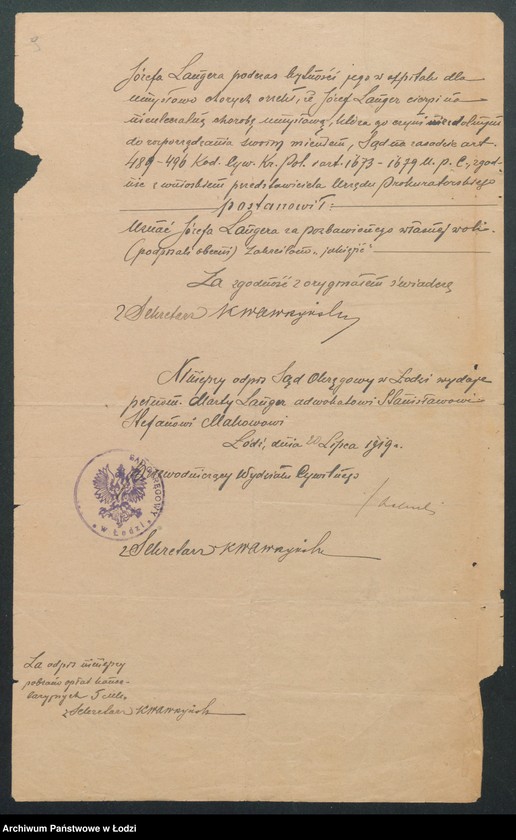 9
Józefa Langera podczas bytności jego w szpitalu dla
umysłowo chorych orzekł, iż Józef Langer cierpi na
nieuleczalną chorobę umysłową, która go czyni niezdolnym
do rozporządzania swoim mieniem, Sąd na zasadzie art.
489-496 Kod. Cyw. Kr. Pol. i art. 1673-1679 U. p. C., zgod-
nie z wnioskiem przedstawiciela Urzędu Prokuratorskiego
postanowił:
Uznać Józefa Langera za pozbawionego własnej woli.
(podpisali obecni) zakreślono „
Za zgodność z oryginałem świadczę
z Sekretarz Kwawzyński
Niniejszy odpis Sąd Okręgowy w Łodzi wydaje
pełnom. Marty Langer adwokatowi Stanisławowi
Stefanowi Makowowi
Łódź, dnia 20 Lipca 1919 r.
Przewodniczący Wydziału Cywilnego
SĄD OKRĘGOWY
w Łodzi
z Sekretarz Kwawzyński
Za odpis niniejszy
pobrano opłat kance-
laryjnych 5 mk.
z Sekretarz Kwawzyński
Archiwum Państwowe w Łodzi